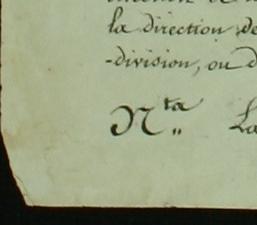 la direction de
-division, ou d
Nta. La